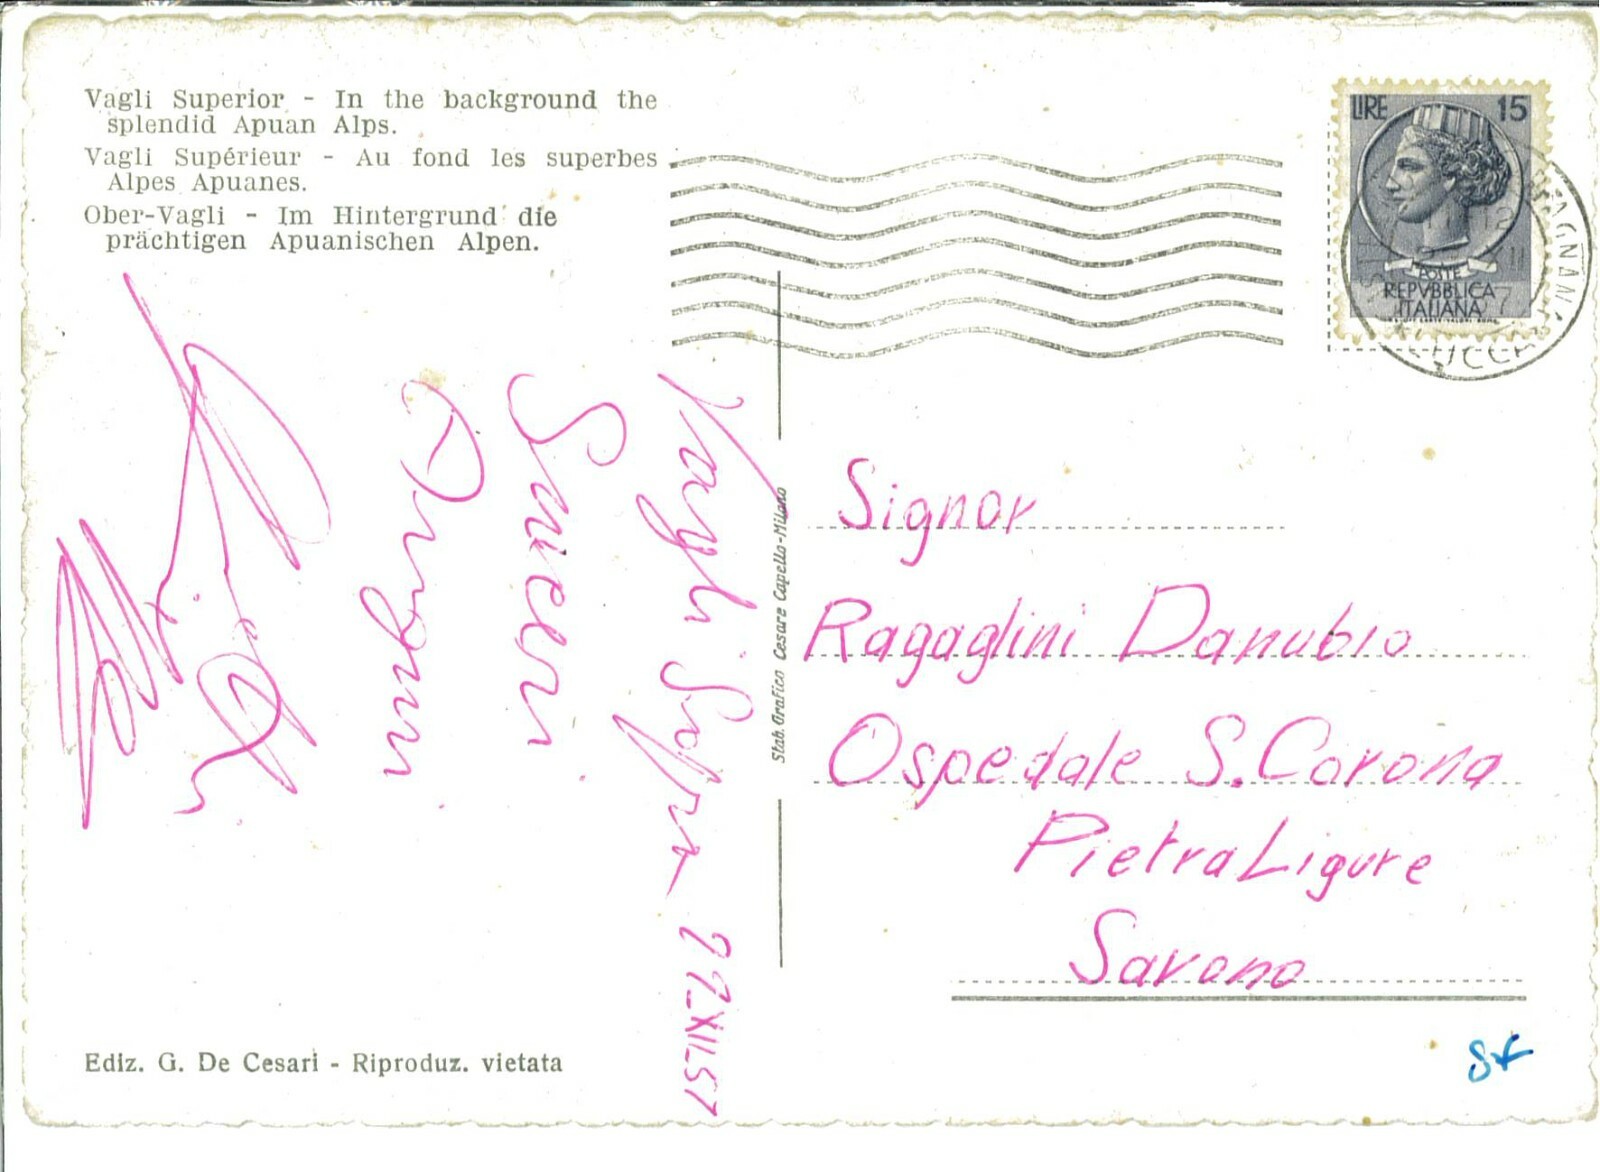 Vagli Superior - In the background the
splendid Apuan Alps.
Vagli Supérieur - Au fond les superbes
Alpes Apuanes.
Ober-Vagli - Im Hintergrund die
prächtigen Apuanischen Alpen.
LIRE 15
POSTE
REPVBBLICA
ITALIANA
LUCCA
Vagli Sopra 22-XII-57
Sinceri
Auguri
Stab. Grafico Cesare Capello-Milano
Signor
Ragaglini Danubio
Ospedale S. Corona
Pietra Ligure
Savona
Ediz. G. De Cesari - Riproduz. vietata